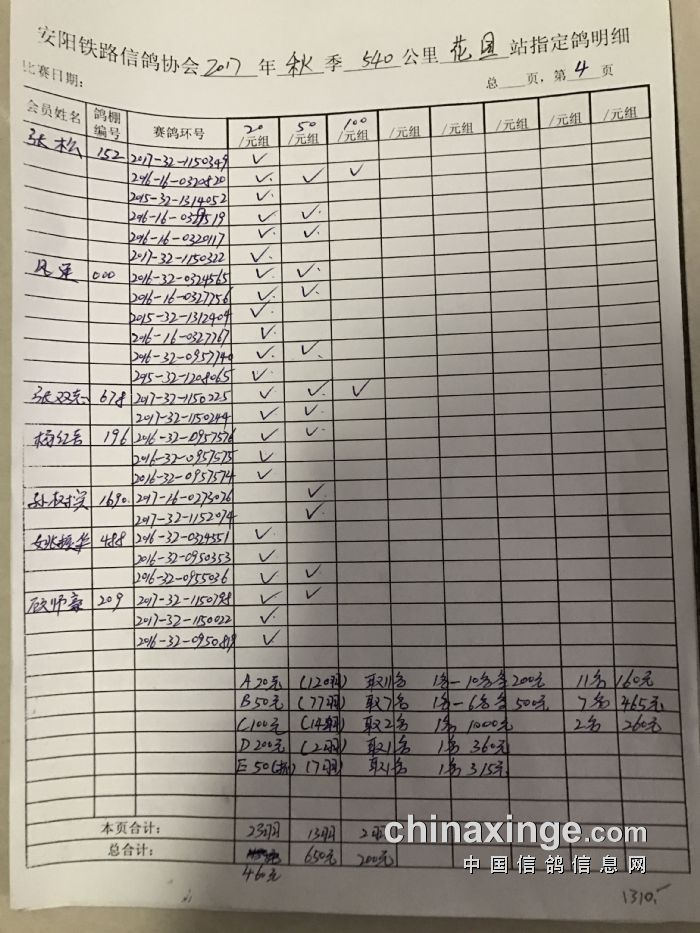 安阳铁路信鸽协会2017年秋季540公里花园站指定鸽明细
比赛日期: 总 页，第4页
会员姓名 鸽棚编号 赛鸽环号 20/元组 50/元组 100/元组 /元组 /元组 /元组 /元组 /元组
张松 152 2017-32-1150349 ✓
2016-16-0320820 ✓ ✓ ✓
2015-32-1314052 ✓
2016-16-0329519 ✓ ✓
2016-16-0320117 ✓ ✓
2017-32-1150322 ✓
000 2016-32-0324565 ✓ ✓
2016-16-0327756 ✓ ✓
2015-32-1312404 ✓
2016-16-0327767 ✓
2016-32-0957740 ✓ ✓
2015-32-1208065 ✓
张双 678 2017-32-1150225 ✓ ✓ ✓
2017-32-1150244 ✓ ✓
梅红吾 196 2016-32-0957576 ✓ ✓
2016-32-0957575 ✓
2016-32-0957574 ✓
孙树 1690 2017-16-0273026 ✓
2017-32-1152074 ✓
姚振华 488 2016-32-0324351 ✓
2016-32-0950353 ✓
2016-32-0955036 ✓ ✓
顾师 209 2017-32-1150798 ✓ ✓
2017-32-1150022 ✓
2016-32-0950819 ✓
A 20元 (120羽) 取11名 1名-10名各200元 11名 160元
B 50元 (77羽) 取7名 1名-6名各500元 7名 465元
C 100元 (14羽) 取2名 1名 1000元 2名 260元
D 200元 (2羽) 取1名 1名 360元
E 50 (7羽) 取1名 1名 315元
本页合计: 23羽 13羽 2羽
总合计: 650元 200元
460元
1310.
chinaxinge.com
中国信鸽信息网